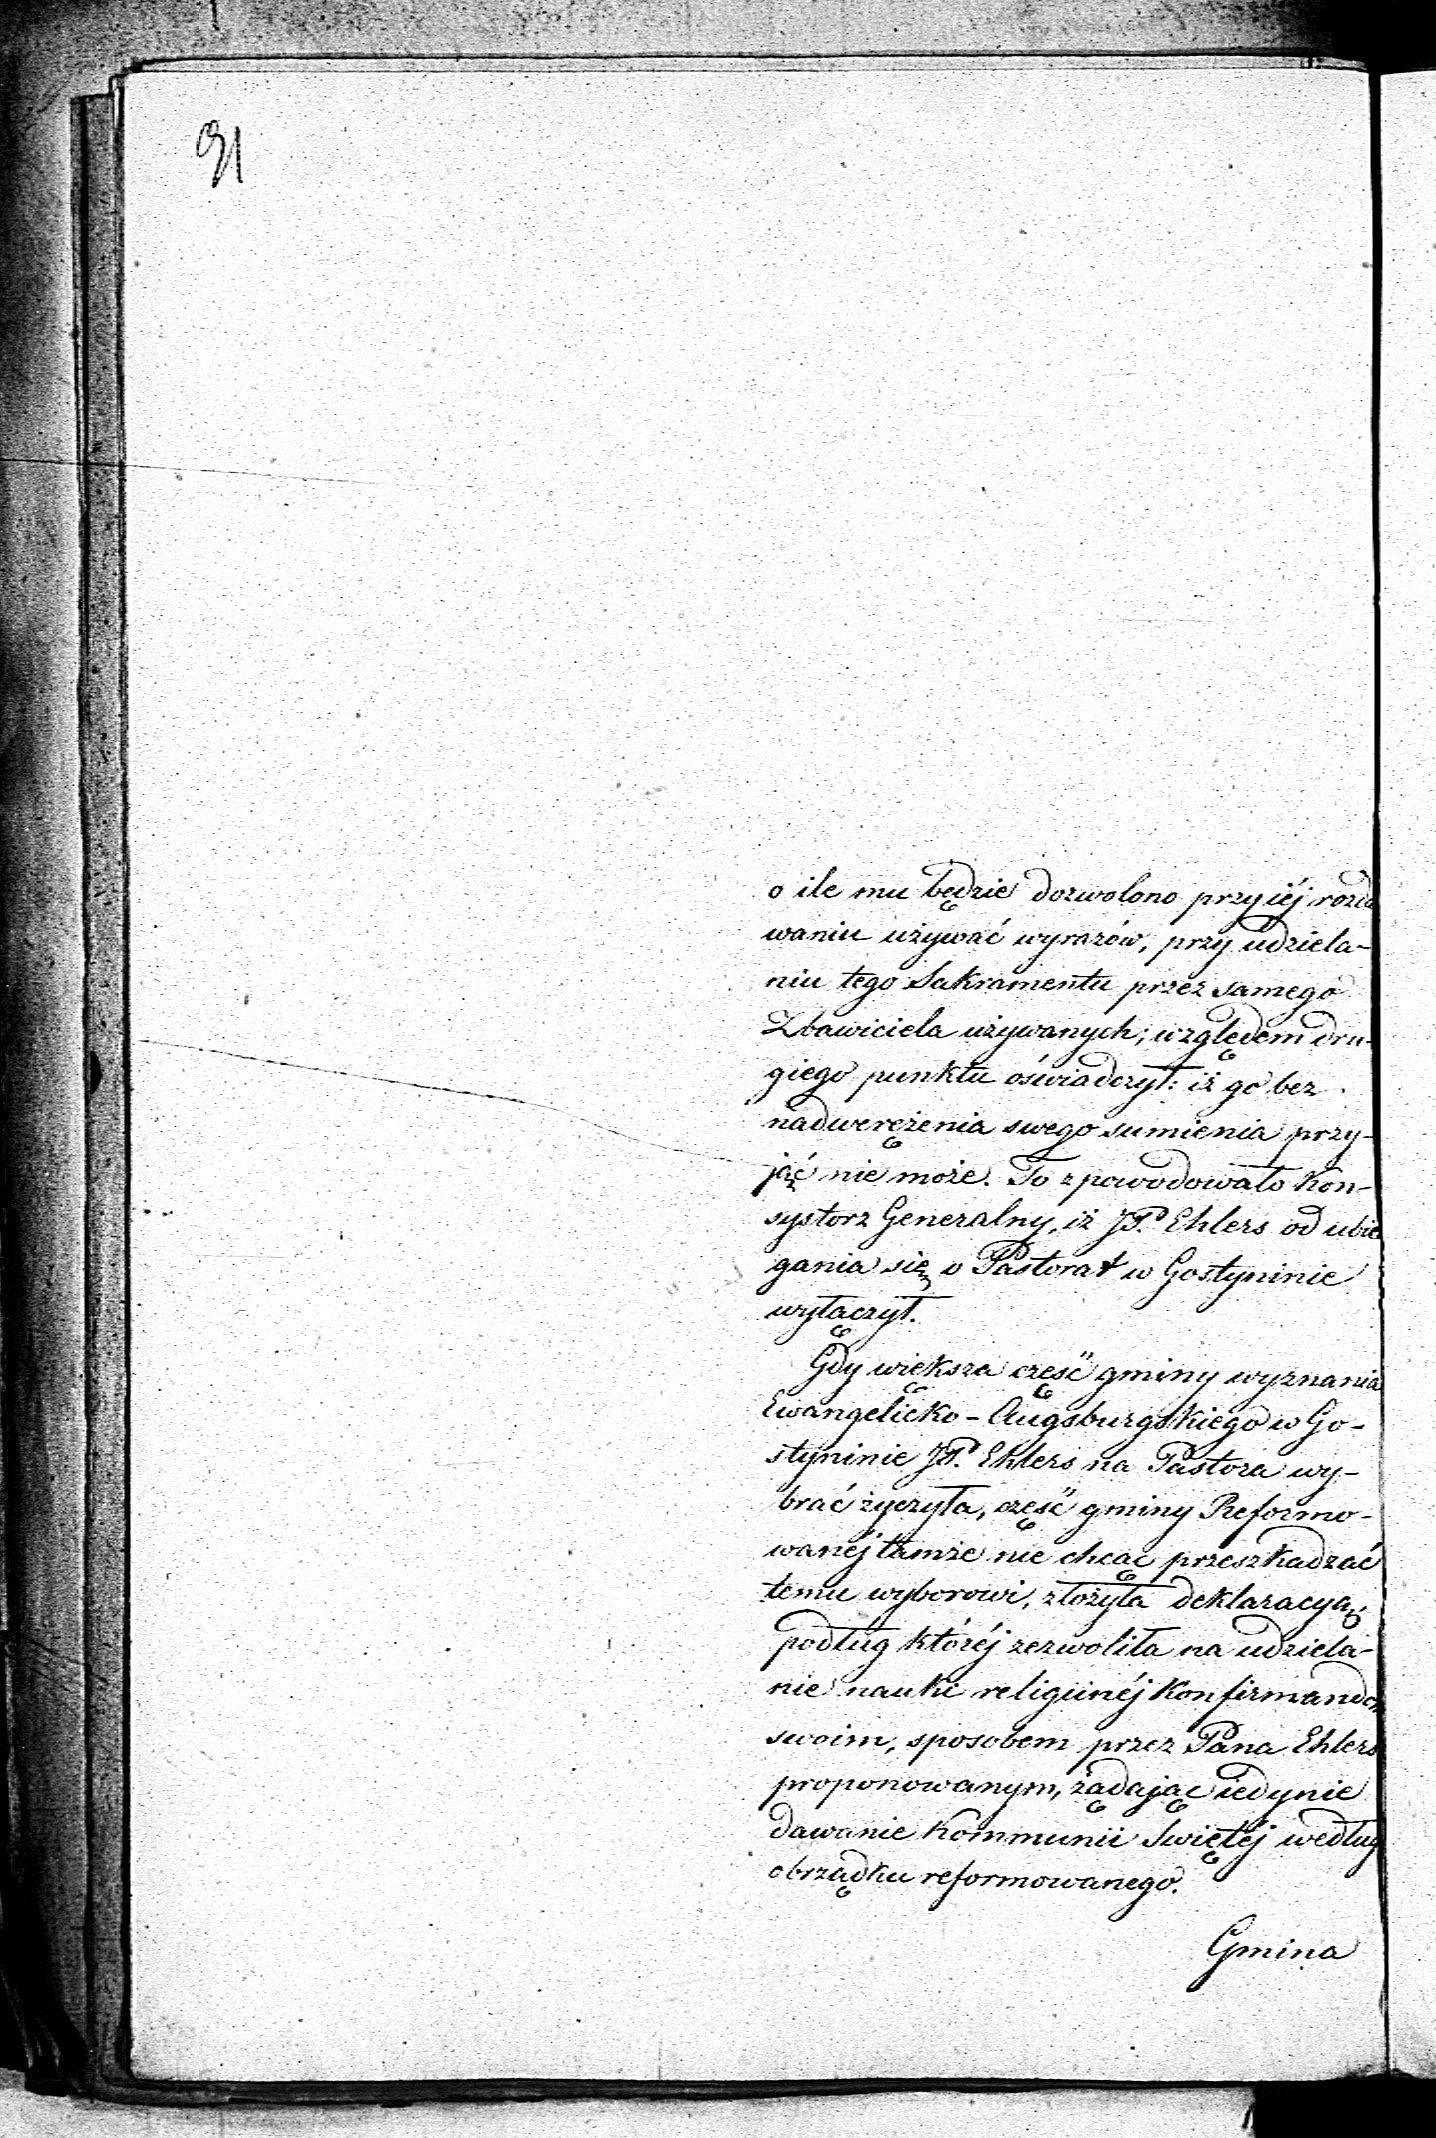 91
o ile mu będzie dozwolono przy iéj rozda
waniu używać wyrazów, przy udziela-
niu tego Sakramentu przez samego
Zbawiciela używanych; względem dru-
giego punktu oświadczył: iż go bez
nadwerężenia swego sumienia przy-
jąć nie może. To spowodowało Kon-
systorz Generalny, iż JP. Ehlers od ubie
gania się o Pastorat w Gostyninie
wyłączył.
Gdy większa część gminy wyznania
Ewangelicko-Augsburgskiego w Go-
styninie JP. Ehlers na Pastora wy-
brać życzyła, część gminy Reformo-
wanéj tamże nie chcąc przeszkadzać
temu wyborowi, złożyła deklaracyą,
podług któréj zezwoliła na udziela-
nie nauki religiinéj Konfirmandom
swoim, sposobem przez Pana Ehlers
proponowanym, żądając iedynie
dawanie Kommunii Świętéj według
obrządku reformowanego.
Gmina